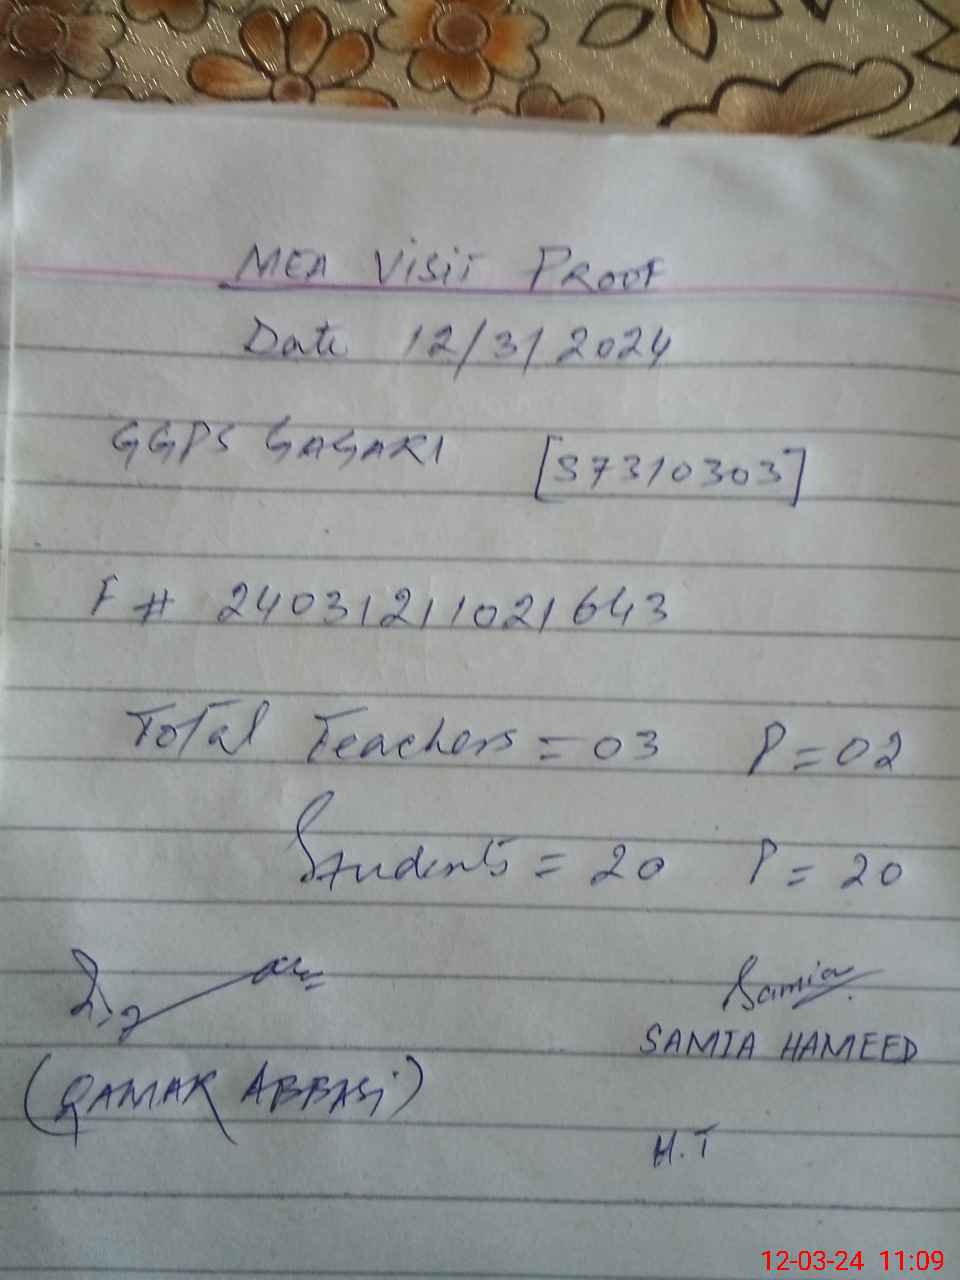 MEA Visit Proof
Date 12/3/2024
GGPS GAGARI [37310303]
F # 24031211021643
Total Teachers = 03 P = 02
Students = 20 P = 20
Samia
SAMIA HAMEED
(QAMAR ABBASI)
H.T
12-03-24 11:09